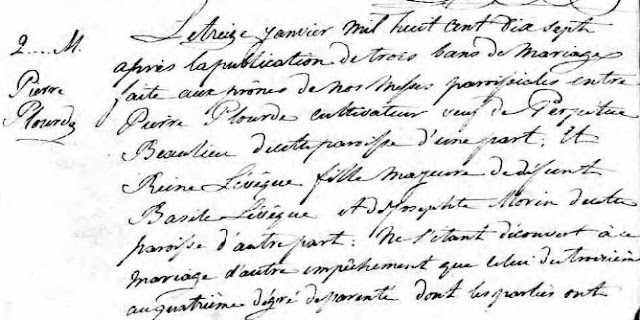 2.... M.
Pierre
Plourde
Le treize janvier mil huit cent dix sept
après la publication de trois bans de Mariage
faite aux prônes de nos Messes paroissiales entre
Pierre Plourde cultivateur veuf de Perpetue
Beaulieu de cette paroisse d'une part; Et
Reine Lévêque fille majeure de défunt
Basile Lévêque et de Josephte Morin de cette
paroisse d'autre part: Ne s'étant découvert à ce
mariage d'autre empêchement que celui du troisième
au quatrième dégré de parenté dont les parties ont